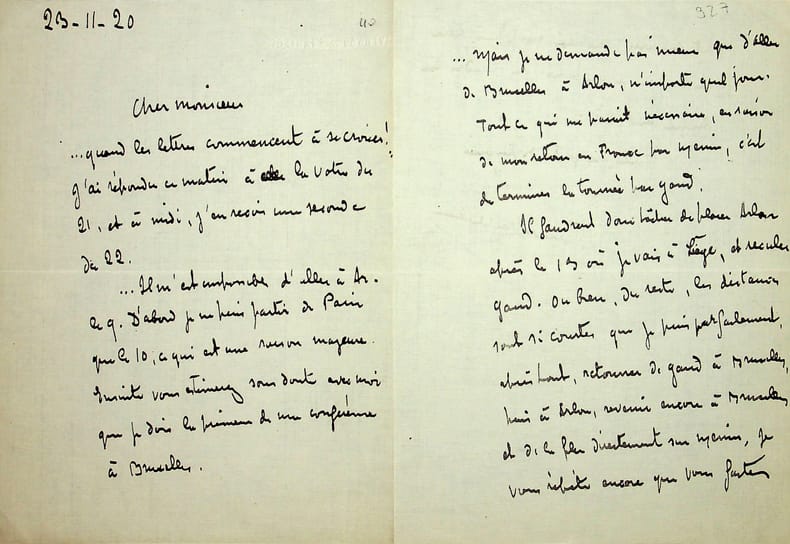 23-11-20
40
Cher monsieur
...quand les lettres commencent à se croiser!
J'ai répondu ce matin à la votre du
21, et à midi, j'en reçois une seconde
du 22.
...Il m'est impossible d'aller à Ar-
le 9. D'abord je ne puis partir de Paris
que le 10, ce qui est une raison majeure.
Ensuite vous estimerez sans doute avec moi
que je dois la primeur de ma conférence
à Bruxelles.
327
...Mais je ne demande pas mieux que d'aller
de Bruxelles à Arlon, n'importe quel jour.
Tout ce qui me parait nécessaire, en raison
de mon retour en France par, c'est
de terminer la tournée par Gand.
Il faudrait donc tâcher de placer Arlon
après le 13 où je vais à Liège, et reculer
Gand. Ou bien, du reste, les distances
sont si courtes que je puis parfaitement,
après tout, retourner de Gand à Bruxelles,
puis à Arlon, revenir encore à Bruxelles
et de là filer directement sur, je
vous répète encore que vous